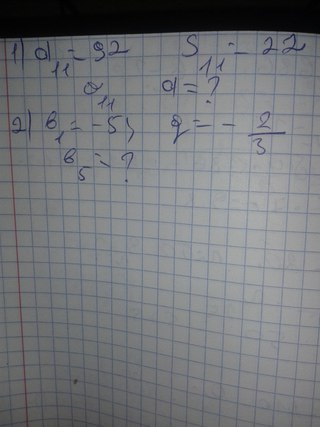 1) a₁₁ = 92 S₁₁ = 22
a₁₁ d = ?
2) b₁ = -5; q = - 2/3
b₅ = ?